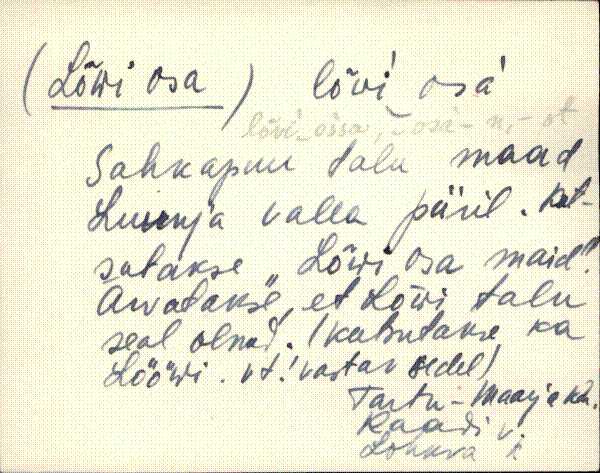 (Lõwi osa) lõvi osá
lõvi-ossa, -osa- n, - ot
Sahkapuu talu maad
Luunja valla päril. Kut-
sutakse „Lõwi osa maid".
Arvatakse, et Lõwi talu
seal olnud. (kutsutakse ka
Lööwi. vt! vastav sedel)
Tartu-Maarja khk.
Raadi v.
Lohkva k